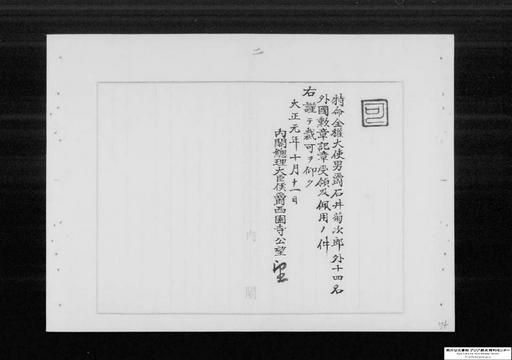 二
特命全權大使男爵石井菊次郎外十四名
外國勲章記章受領及佩用ノ件
右謹テ裁可ヲ仰ク
大正元年十月十一日
内閣總理大臣侯爵西園寺公望
内閣